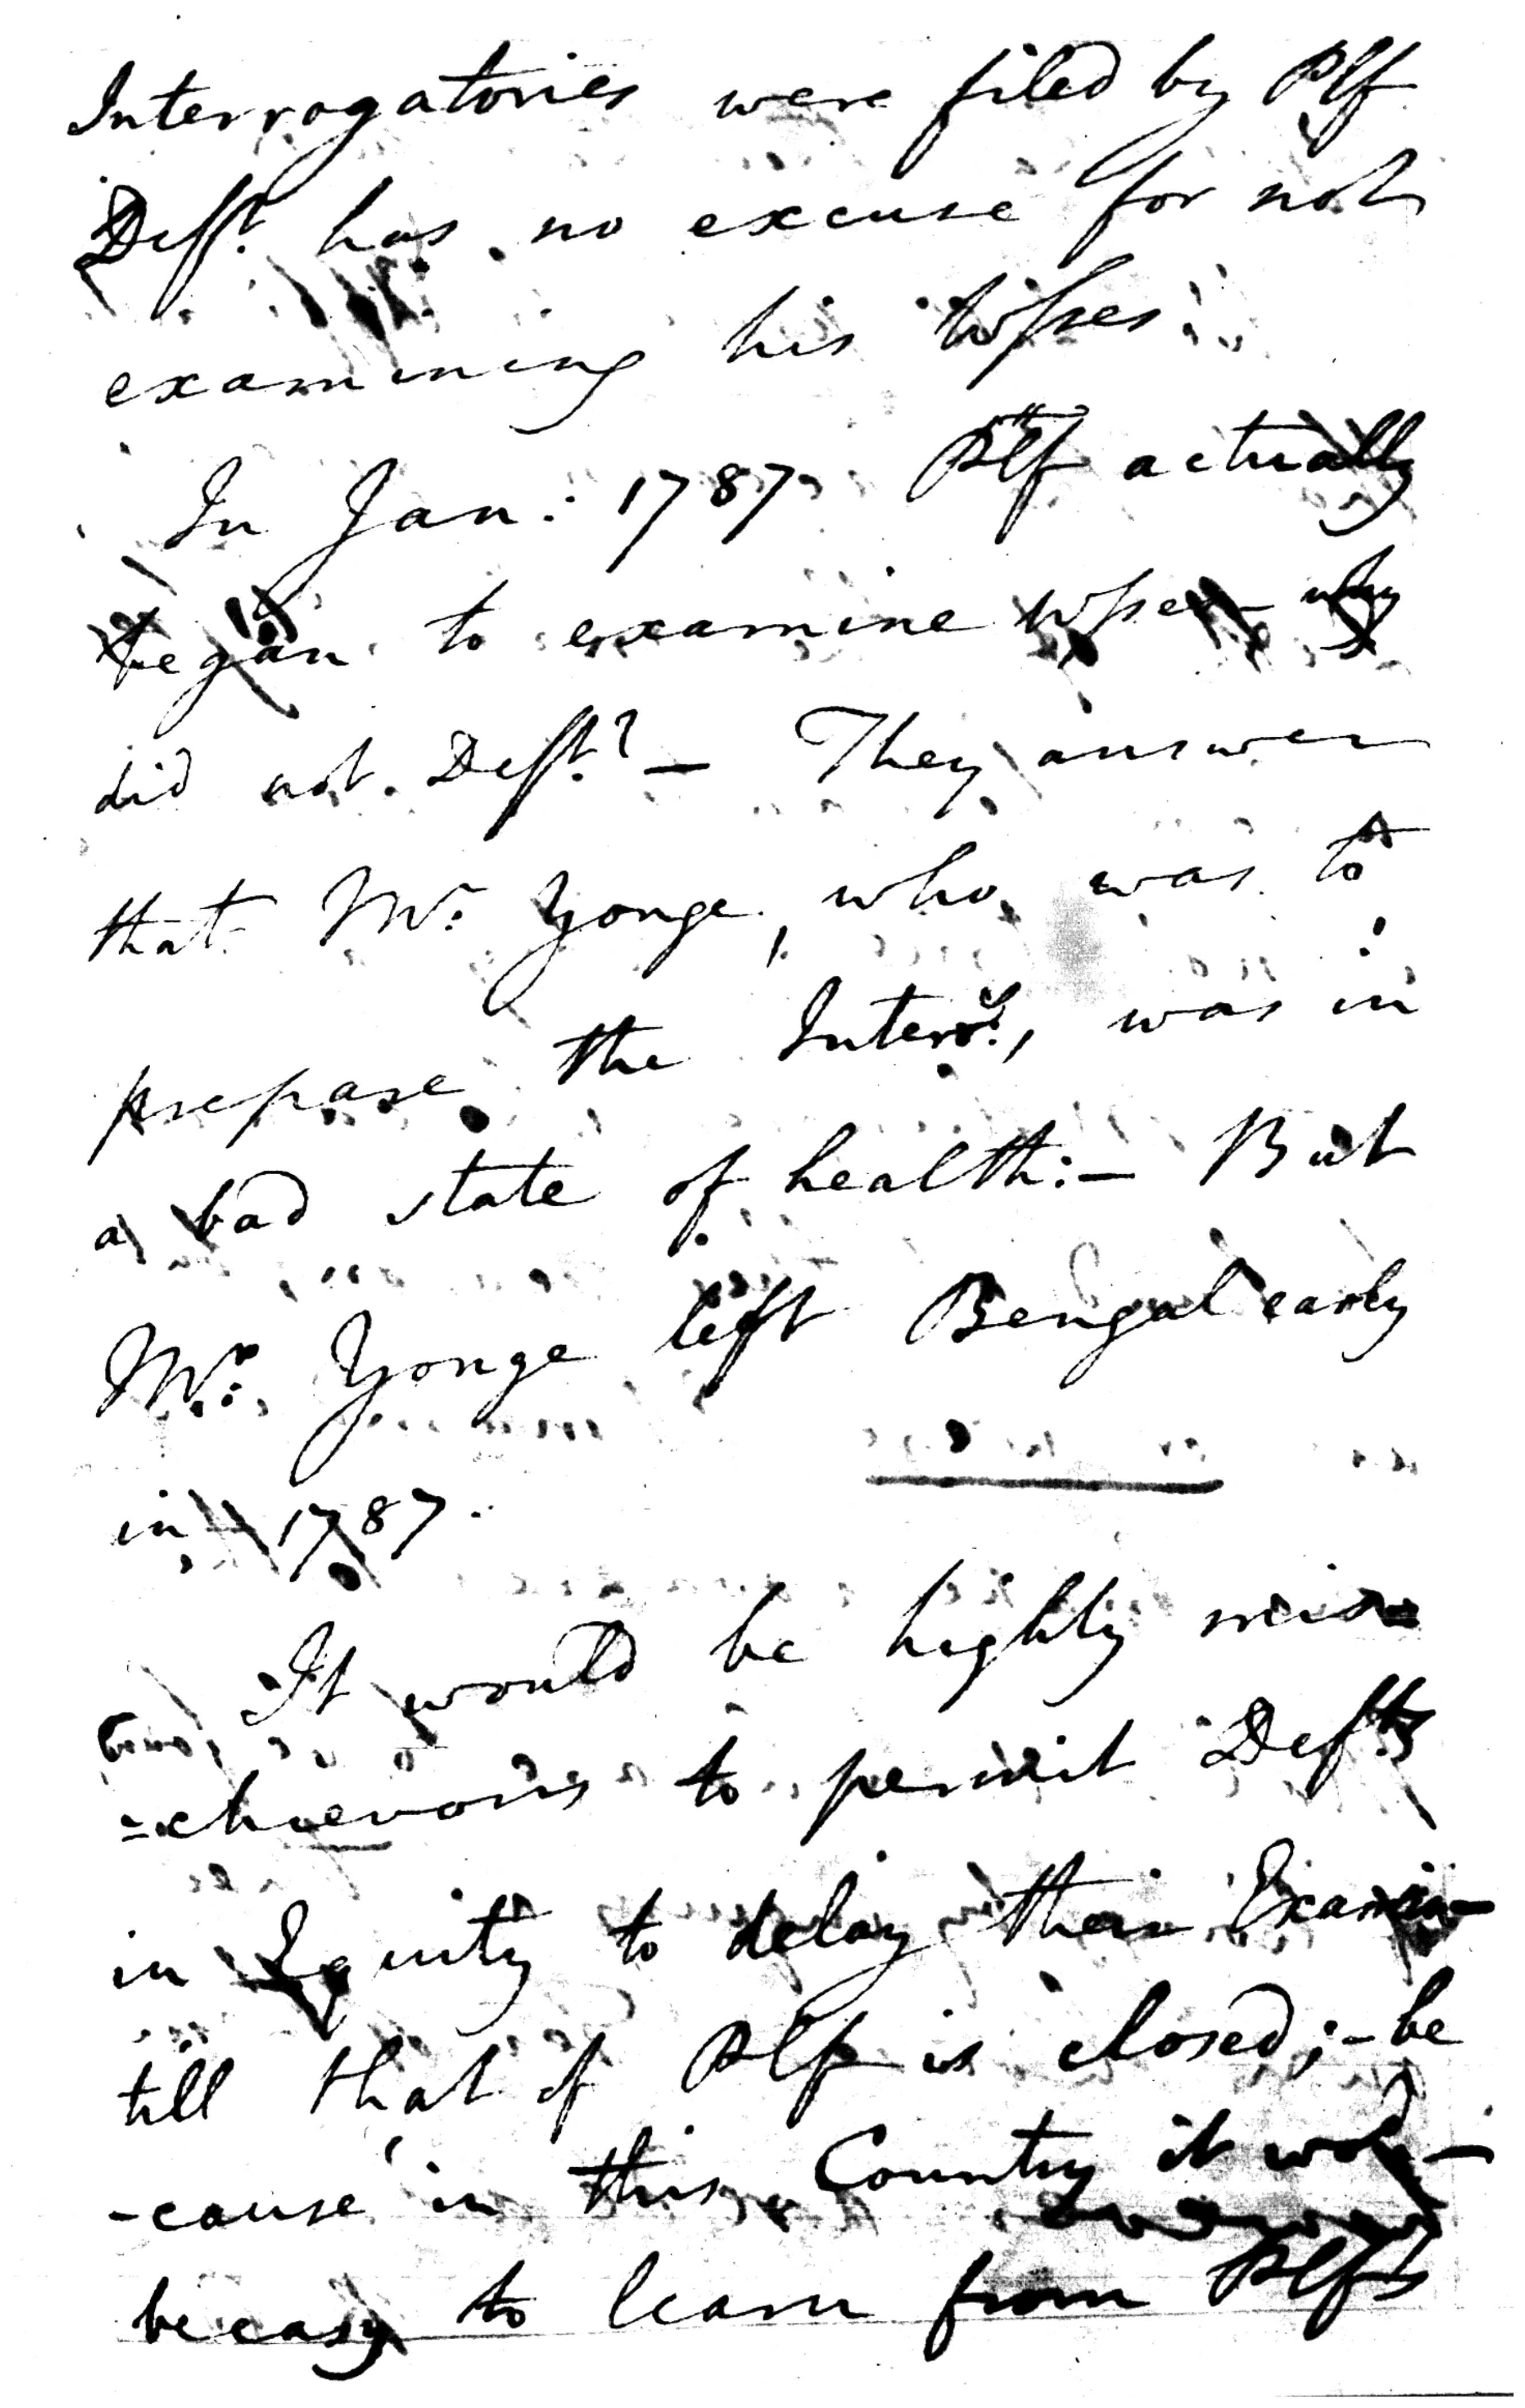 Interrogatories were filed by Plf
Deft. has no excuse for not
examining his Wsses.
In Jan: 1787 Plf actually
began to examine Wsses — why
did not Deft? — They answer
that Mr. Yonge, who was to
prepare the Interrs., was in
a bad state of health: — But
Mr. Yonge left Bengal early
in 1787.
It would be highly mis=
=chievous to permit Defts
in Equity to delay their Examin—
till that of Plf is closed; — be
-cause in this Country it wod—
be easy to learn from Plfs